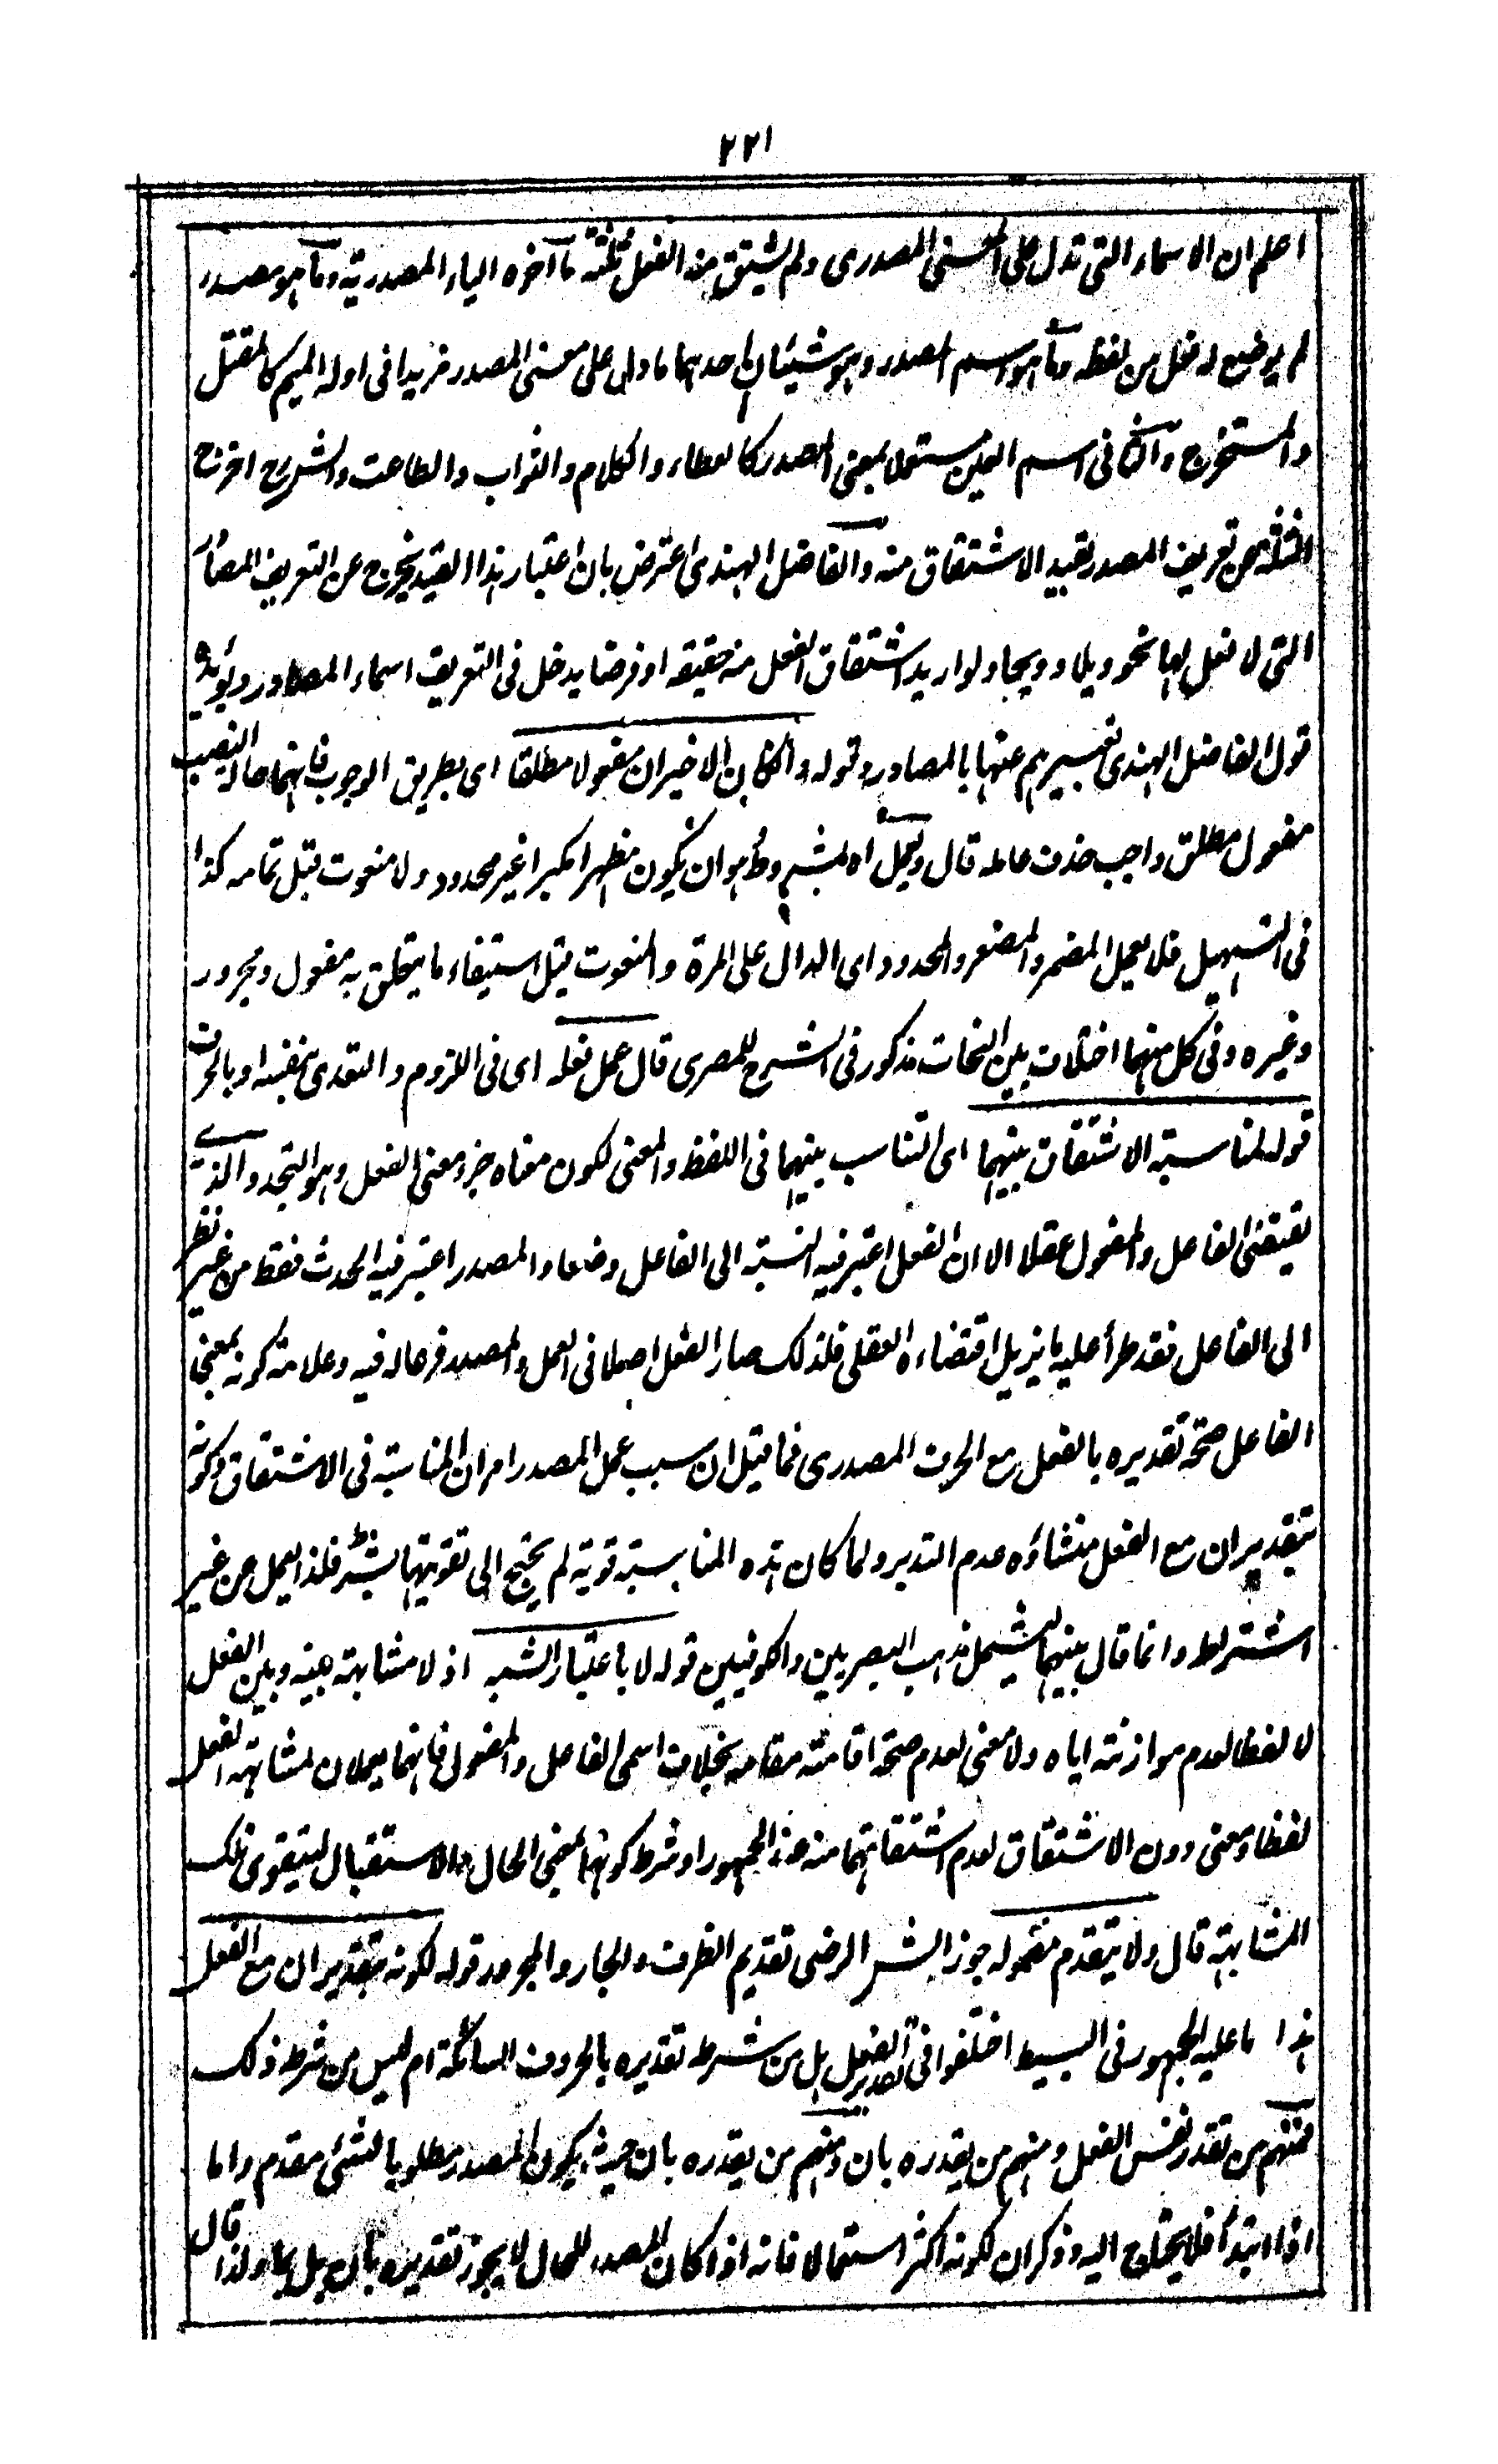 ٢٢١
اعلم ان الاسماء التى تدل على المعنى المصدرى ولم يشتق منه الفعل ثلثة ما آخره الياء المصدرية وما هو مصدر
لم يوضع له فعل من لفظه وما هو اسم المصدر وهو شيئان احدهما ما دل على معنى المصدر مزيدا فى اوله الميم كالمقتل
والمستخرج والثانى اسم العين مستعملا بمعنى المصدر كالعطاء والكلام والثواب والطاعت والشرح اخرج
الثلثة عن تعريف المصدر بقيد الاشتقاق منه والفاضل الهندى اعترض بان اعتبار هذا القيد يخرج عن التعريف المصادر
التى لا فعل لها نحو ويلا وويحا ولو اريد اشتقاق الفعل منه حقيقه او فرضا يدخل فى التعريف اسماء المصادر ويؤيده
قول الفاضل الهندى تعبيرهم عنها بالمصادر وقوله والكان الاخيران مفعولا مطلقا اى بطريق الوجوب فانهما حالة النصب
مفعول مطلق واجب حذف عامله قال ويعمل اه بشروط هو ان يكون مظهرا مكبرا غير محدود ولا منعوت قبل تمامه كذا
فى التسهيل فلا يعمل المضمر والمصغر والمحدود اى الدال على المرة والمنعوت قبل استيفاء ما يتعلق به مفعول ومجرور
وغيره وفى كل منهما اختلاف بين النحات مذكور فى الشرح للمصرى قال عمل فعله اى فى اللزوم والتعدى بنفسه او بالحرف
قوله لمناسبة الاشتقاق بينهما اى التناسب بينهما فى اللفظ والمعنى لكون معناه جزء معنى الفعل وهو التجدد الذى
يقتضى الفاعل والمفعول عقلا الا ان الفعل اعتبر فيه النسبة الى الفاعل وضعا والمصدر اعتبر فيه الحدث فقط من غير نظر
الى الفاعل فقد طرأ عليه ما يزيل اقتضاءه العقلى فلذلك صار الفعل اصلا فى العمل والمصدر فرعا له فيه وعلامة كونه بمعنى
الفاعل صحة تقديره بالفعل مع الحرف المصدرى فما قيل ان سبب عمل المصدر امران المناسبة فى الاشتقاق وكونه
بتقدير ان مع الفعل منشاؤه عدم التدبر ولما كان هذه المناسبة قوية لم يحتج الى تقويتها بشرط فلذا يعمل من غير
اشتراط وانما قال بينهما ليشمل مذهب البصريين والكوفيين قوله لا باعتبار الشبه اذ لا مشابهة بينه وبين الفعل
لا لفظا لعدم موازنته اياه ولا معنى لعدم صحة اقامته مقامه بخلاف اسمى الفاعل والمفعول فانهما يعملان لمشابهة الفعل
لفظا ومعنى دون الاشتقاق لعدم اشتقاقهما منه عند الجمهور او شرط كونهما بمعنى الحال والاستقبال ليتقوى تلك
المشابهة قال ولا يتقدم معموله جوز الشيخ الرضى تقديم الظرف والجار والمجرور قوله لكونه بتقدير ان مع الفعل
هذا ما عليه الجمهور فى البسيط اختلفوا فى تقدير الفعل هل من شرطه تقديره بالحروف السابكة ام ليس من شرط ذلك
فمنهم من تقدر نفس الفعل ومنهم من يقدره بان ومنهم من يقدره بان حيث يكون المصدر مطلوبا لشئ مقدم واما
اذا ابتدأ فلا يحتاج اليه وذكر ان لكونه اكثر استعمالا فانه اذا كان المصدر للحال لا يجوز تقديره بان بل بما ولذا قال